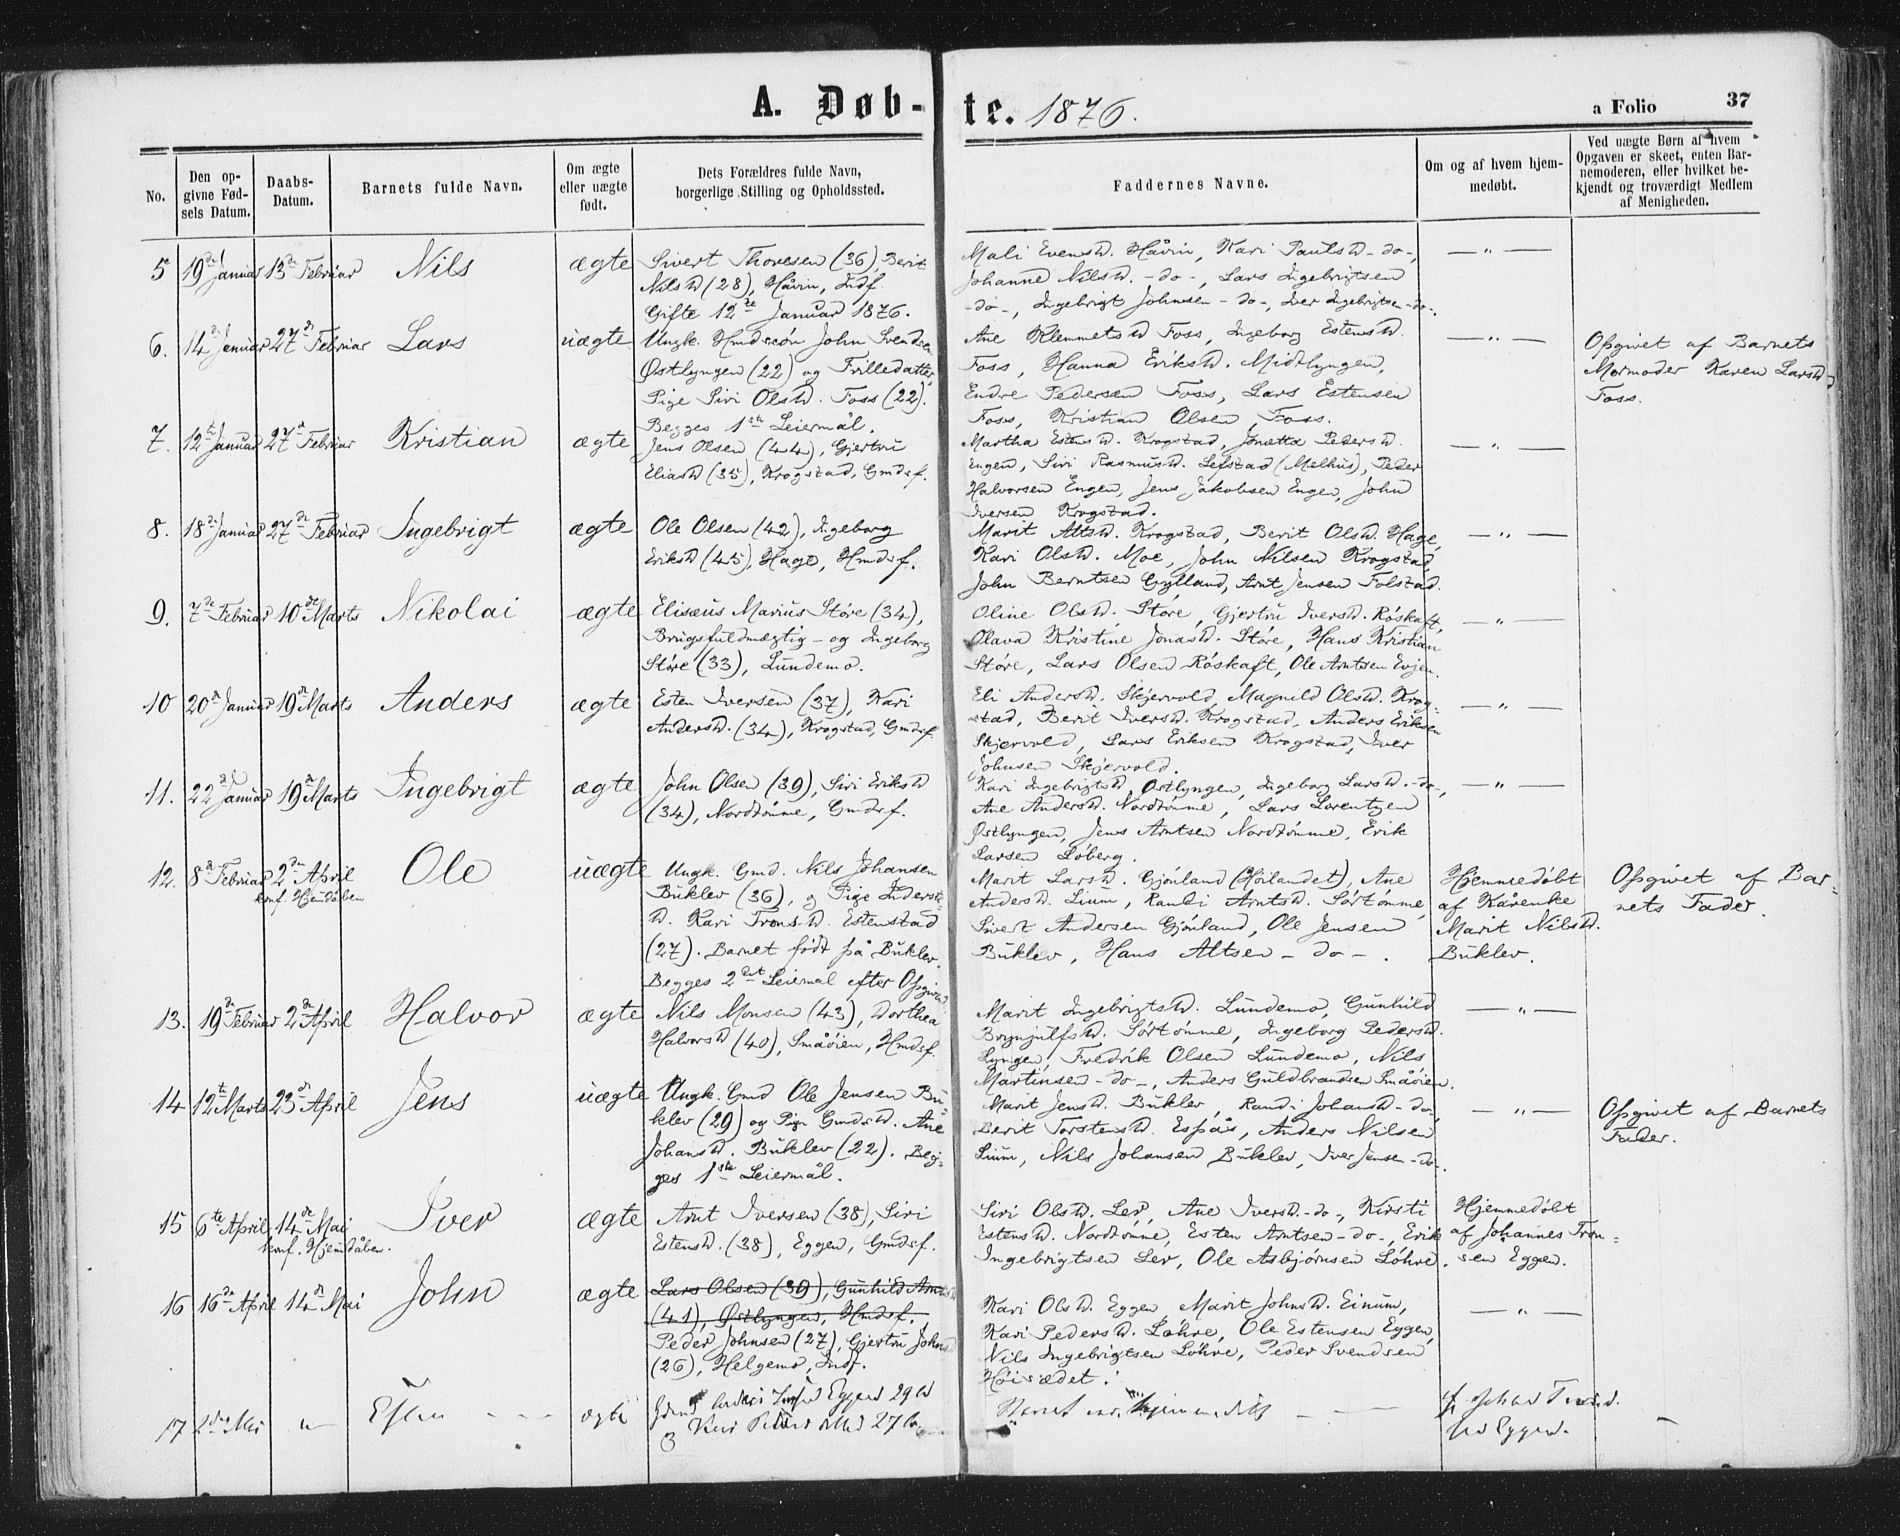 A. Døb-
te. 1876.
a Folio 37
No.
Den op-
givne Fød-
sels Datum.
Daabs-
Datum.
Barnets fulde Navn.
Om ægte
eller uægte
født.
Dets Forældres fulde Navn,
borgerlige Stilling og Opholdssted.
Faddernes Navne.
Om og af hvem hjem-
medøbt.
Ved uægte Børn af hvem
Opgaven er skeet, enten Bar-
nemoderen, eller hvilket be-
kjendt og troværdigt Medlem
af Menigheden.
5 19de Januar 13de Februar Nils ægte
Sivert Thoresen (36), Berit
Nilsd (28), Håvin, Indf.
Gifte 12te Januar 1876.
Mali Evensd. Håvin, Kari Paulsd -do-,
Johanne Nilsd. -do-, Lars Ingebrigtsen
-do-, Ingebrigt Johnsen -do-, Iver Ingebrigtsen -do-.
— " —
6. 14de Januar 27de Februar Lars uægte
Ungk. Hmdssøn John Svendsen
Østlyngen (22) og Frilledatter,
Pige Siri Olsd. Foss (22).
Begges 1ste Leiermål.
Ane Klemmetsd Foss, Ingeborg Estensd.
Foss, Hanna Eriksd. Midtlyngen,
Endre Pedersen Foss, Lars Estensen
Foss, Kristian Olsen Foss.
— " —
Opgivet af Barnets
Mormoder Karen Larsd
Foss.
7. 12te Januar 27de Februar Kristian ægte
Jens Olsen (44), Gjertru
Eliasd (35), Krogstad, Gmdsf.
Martha Estensd. Krogstad, Jonetta Pedersd.
Engen, Siri Rasmusd. Lefstad (Melhus), Peder
Halvorsen Engen, Jens Jakobsen Engen, John
Iversen Krogstad.
— " —
8. 18de Januar 27de Februar Ingebrigt ægte
Ole Olsen (42), Ingeborg
Eriksd (45), Hage, Hmdsf.
Marit Altsd. Krogstad, Berit Olsd. Hage,
Kari Olsd. Moe, John Nilsen Krogstad,
John Berntsen Gylland, Arnt Jensen Folstad.
— " —
9. 7de Februar 10de Marts Nikolai ægte
Elisæus Marius Støre (34),
Brugsfuldmægtig - og Ingeborg
Støre (33), Lundemo.
Oline Olsd. Støre, Gjertru Iversd. Røskaft,
Olava Kristine Jonasd. Støre, Hans Kristian
Støre, Lars Olsen Røskaft, Ole Arntsen Evjen.
— " —
10 20de Januar 19de Marts Anders ægte
Esten Iversen (37), Kari
Andersd. (34), Krogstad, Gmdsf.
Eli Andersd. Skjervold, Magnild Olsd. Krog-
stad, Berit Iversd. Krogstad, Anders Eriksen
Skjervold, Lars Eriksen Krogstad, Iver
Johnsen Skjervold.
— " —
11. 22de Januar 19de Marts Ingebrigt ægte
John Olsen (39), Siri Eriksd
(34), Nordtømme, Gmdsf.
Kari Ingebrigtsd. Østlyngen, Ingeborg Larsd. -do-,
Ane Andersd. Nordtømme, Lars Lorentzen
Østlyngen, Jens Arntsen Nordtømme, Erik
Larsen Løberg.
— " —
12. 8de Februar 2den April
konf. Hjemdåben
Ole uægte
Ungk. Gmd. Nils Johansen
Buklev (36), og Pige Inderste-
d. Kari Tronsd. Estenstad
(27). Barnet født på Buklev.
Begges 2det Leiermål efter Opgivd.
Marit Larsd. Gjønland (Hølandet), Ane
Andersd. Lium, Randi Arntsd. Sørtømme,
Sivert Andersen Gjønland, Ole Jensen
Buklev, Hans Altsen -do-.
Hjemmedøbt
af Kårenke
Marit Nilsd.
Buklev.
Opgivet af Bar-
nets Fader.
13. 19de Februar 2den April Halvor ægte
Nils Monsen (43), Dorthea
Halvorsd (40), Småøien, Hmdsf.
Marit Ingebrigtsd. Lundemo, Gunhild
Brynjulfsd. Sørtømme, Ingeborg Pedersd.
Lyngen, Fredrik Olsen Lundemo, Nils
Martinsen -do-, Anders Guldbrandsen Småøien.
— " —
14 12te Marts 23de April Jens uægte
Ungk. Gmd Ole Jensen Bu-
klev (29) og Pige Gmdsd. Ane
Johansd. Buklev (22). Beg-
ges 1ste Leiermål.
Marit Jensd. Buklev, Randi Johansd -do-,
Berit Torstensd. Espås, Anders Nilsen
Lium, Nils Johansen Buklev, Iver Jensen -do-.
— " —
Opgivet af Barnets
Fader.
15 6te April 14de Mai
konf. Hjemdåben.
Iver ægte
Arnt Iversen (38), Siri
Estensd. (38), Eggen, Gmdsf.
Siri Olsd. Ler, Ane Iversd. -do-, Kirsti
Estensd. Nordtømme, Esten Arntsen -do-, Erik
Ingebrigtsen Ler, Ole Asbjørnsen Løhre.
Hjemmedøbt
af Johannes Tron-
sen Eggen.
16 16de April 14de Mai John ægte
Lars Olsen (39), Gunhild Arntsd
(41), Østlyngen, Hmdsf.
Peder Johnsen (27), Gjertru Johnsd
(26), Helgemo, Indf.
Kari Olsd. Eggen, Marit Johnsd. Einum,
Kari Pedersd. Løhre, Ole Estensen Eggen,
Nils Ingebrigtsen Løhre, Peder Svendsen
Høisædet.
— " —
17 2den Mai " Esten ægte
Eggen 29
27
Barnet var hjemmedøbt
Eggen.